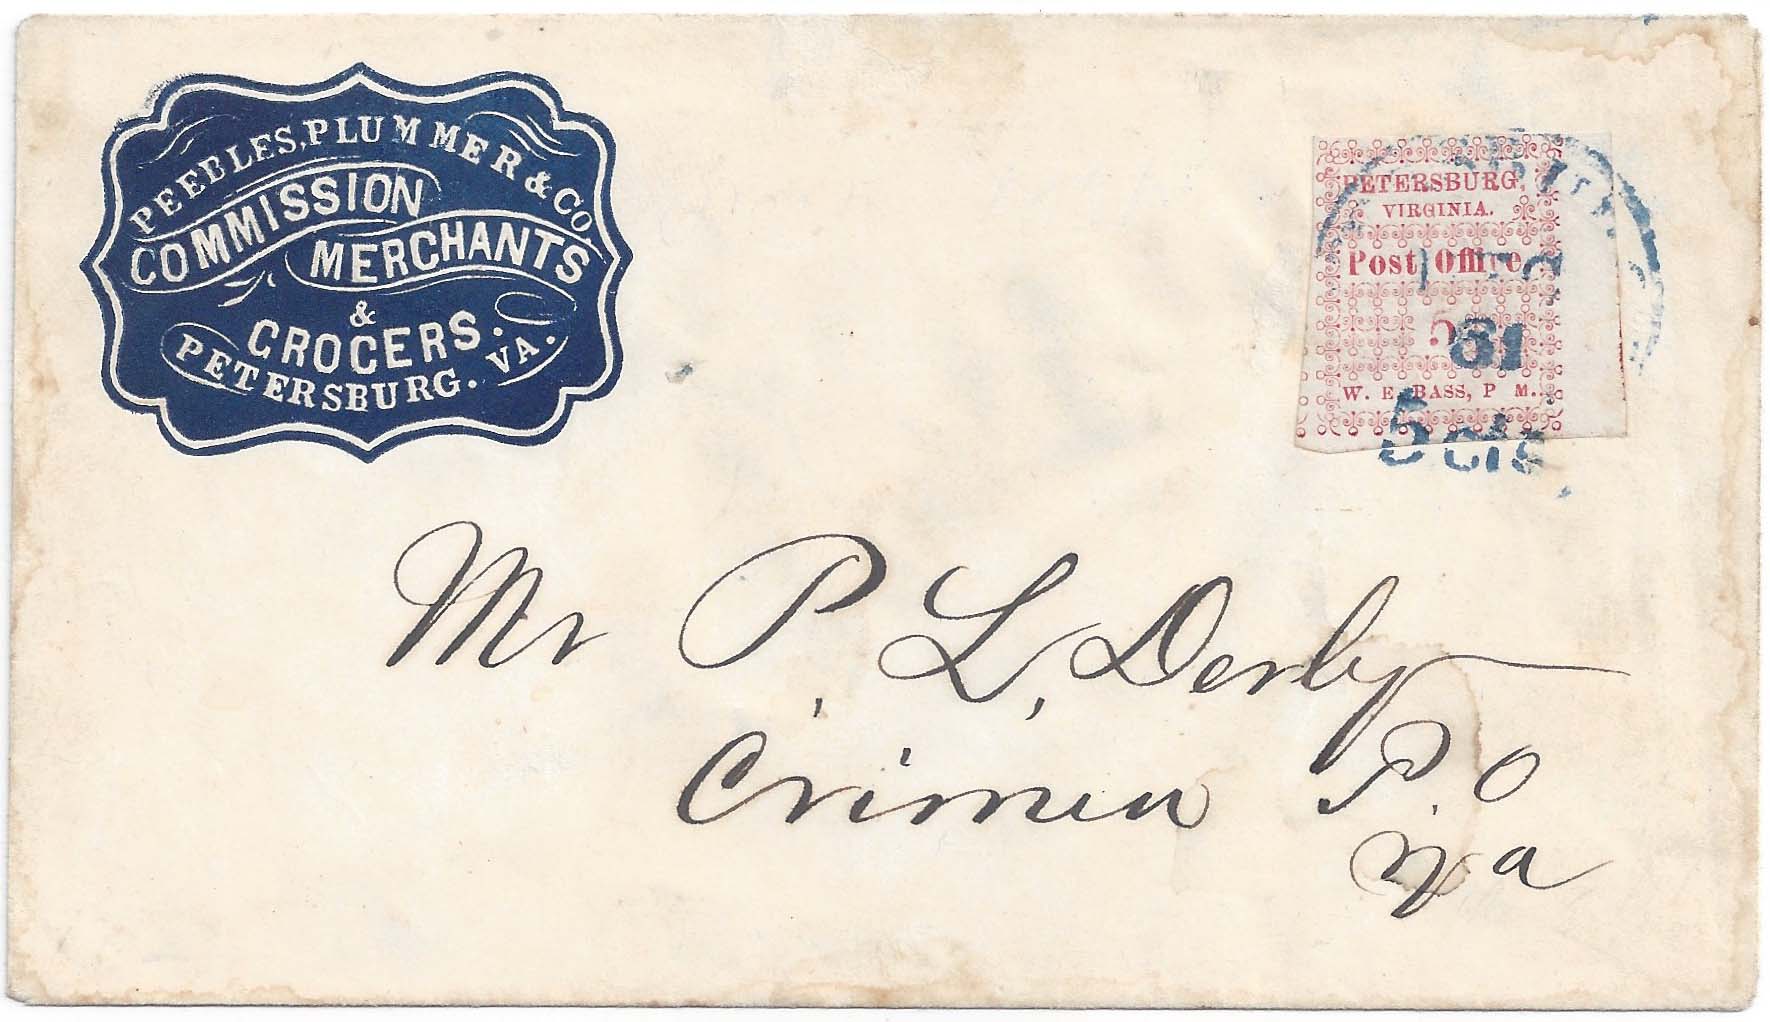 PEEBLES, PLUMMER & CO.
COMMISSION
MERCHANTS
&
GROCERS.
PETERSBURG. VA.
PETERSBURG,
VIRGINIA.
Post Office
5
W. E. BASS, P M.
61
5 cts
Mr P. L. Derby
Crimea P.O
Va